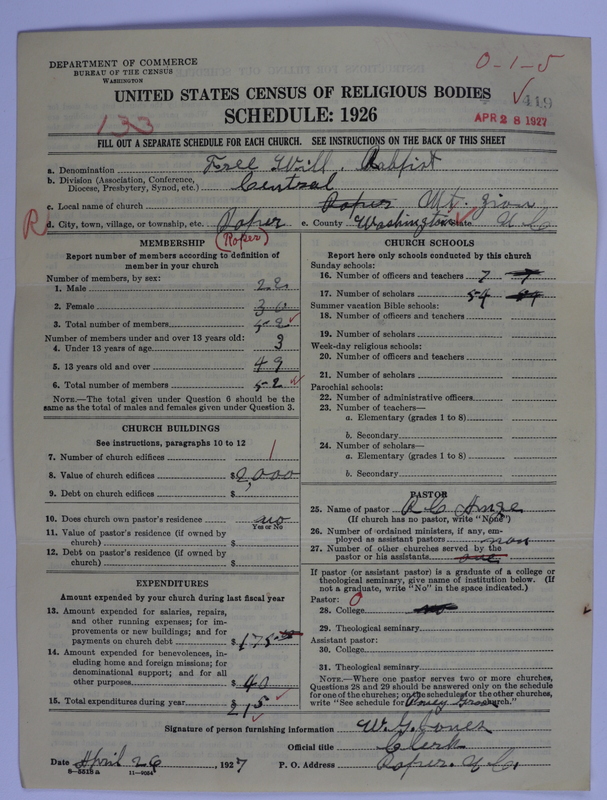 DEPARTMENT OF COMMERCE
BUREAU OF THE CENSUS
WASHINGTON
0-1-5
UNITED STATES CENSUS OF RELIGIOUS BODIES
SCHEDULE: 1926
419
APR 28 1927
133
FILL OUT A SEPARATE SCHEDULE FOR EACH CHURCH. SEE INSTRUCTIONS ON THE BACK OF THIS SHEET
a. Denomination Free Will Babtist
b. Division (Association, Conference, Diocese, Presbytery, Synod, etc.) Central
c. Local name of church Roper Mt. Zion
R d. City, town, village, or township, etc. Roper e. County Washington State N.C.
(Roper)
MEMBERSHIP
Report number of members according to definition of member in your church
Number of members, by sex:
1. Male 22
2. Female 30
3. Total number of members 52
Number of members under and over 13 years old:
4. Under 13 years of age 3
5. 13 years old and over 49
6. Total number of members 52
NOTE.—The total given under Question 6 should be the same as the total of males and females given under Question 3.
CHURCH BUILDINGS
See instructions, paragraphs 10 to 12
7. Number of church edifices 1
8. Value of church edifices $2,000
9. Debt on church edifices $
10. Does church own pastor's residence no
Yes or No
11. Value of pastor's residence (if owned by church) $
12. Debt on pastor's residence (if owned by church) $
EXPENDITURES
Amount expended by your church during last fiscal year
13. Amount expended for salaries, repairs, and other running expenses; for improvements or new buildings; and for payments on church debt $175
14. Amount expended for benevolences, including home and foreign missions; for denominational support; and for all other purposes $40
15. Total expenditures during year $215
CHURCH SCHOOLS
Report here only schools conducted by this church
Sunday schools:
16. Number of officers and teachers 7
17. Number of scholars 54
Summer vacation Bible schools:
18. Number of officers and teachers
19. Number of scholars
Week-day religious schools:
20. Number of officers and teachers
21. Number of scholars
Parochial schools:
22. Number of administrative officers
23. Number of teachers—
a. Elementary (grades 1 to 8)
b. Secondary
24. Number of scholars—
a. Elementary (grades 1 to 8)
b. Secondary
PASTOR
25. Name of pastor R C
(If church has no pastor, write "None")
26. Number of ordained ministers, if any, employed as assistant pastors non
27. Number of other churches served by the pastor or his assistants one
If pastor (or assistant pastor) is a graduate of a college or theological seminary, give name of institution below. (If not a graduate, write "No" in the space indicated.)
Pastor: 0
28. College no
29. Theological seminary
Assistant pastor:
30. College
31. Theological seminary
NOTE.—Where one pastor serves two or more churches, Questions 28 and 29 should be answered only on the schedule for one of the churches; on the schedules for the other churches, write "See schedule for Piney Grove church."
Signature of person furnishing information W. G. Jones
Official title Clerk
Date April 26, 1927 P. O. Address Roper. N.C.
8—5518 a 11—9064